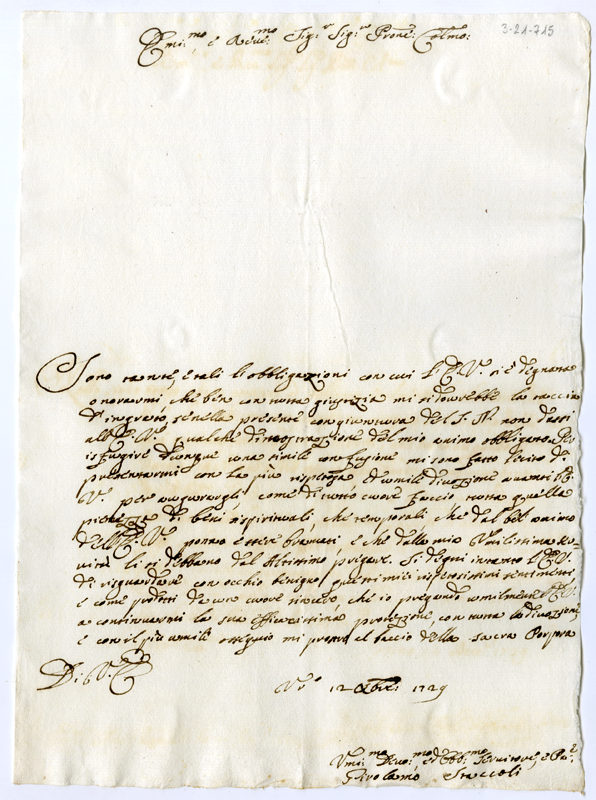 3-21-715
Emi:mo e Reve:mo Sig:r Sig:r Prone: Colmo:
Sono tante, e tali le obbligazioni con cui l'E. V. si è degnata
onorarmi che ben con tutta giustizia mi si dourebbe la taccia
d'ingrato, se nella presente congiuntura del S. N. non dassi
all'E. V. qualche dimostrazione del mio animo obbligato. Per
isfugire dunque una simile confusione mi sono fatto lecito di
presentarmi con la più rispettosa, ed umile divozione avanti l'E.
V. per augurargli, come di tutto cuore faccio tutta quella
pienezza di beni sì spirituali, che temporali, che dal bel animo
dell'E. V. ponno essere bramati e che dalla mia Umilissima ser-
vitù li si debbano dal Altissimo pregare. Si degni intanto l'E. V.
di risguardare con occhio benigno questi miei rispettosissimi sentimenti
e come prodotti da un cuore sincero, che io pregando umilmente l'E. V.
a continuarmi la sua efficacissima protezione, con tutta la divozione,
e con il più umile ossequio mi prostro al baccio della sacra Porpora
Di V. E.
12 Xbre 1729
Umi:mo Devo:mo ed Obb:mo Servitore, e
Girolamo Staccoli